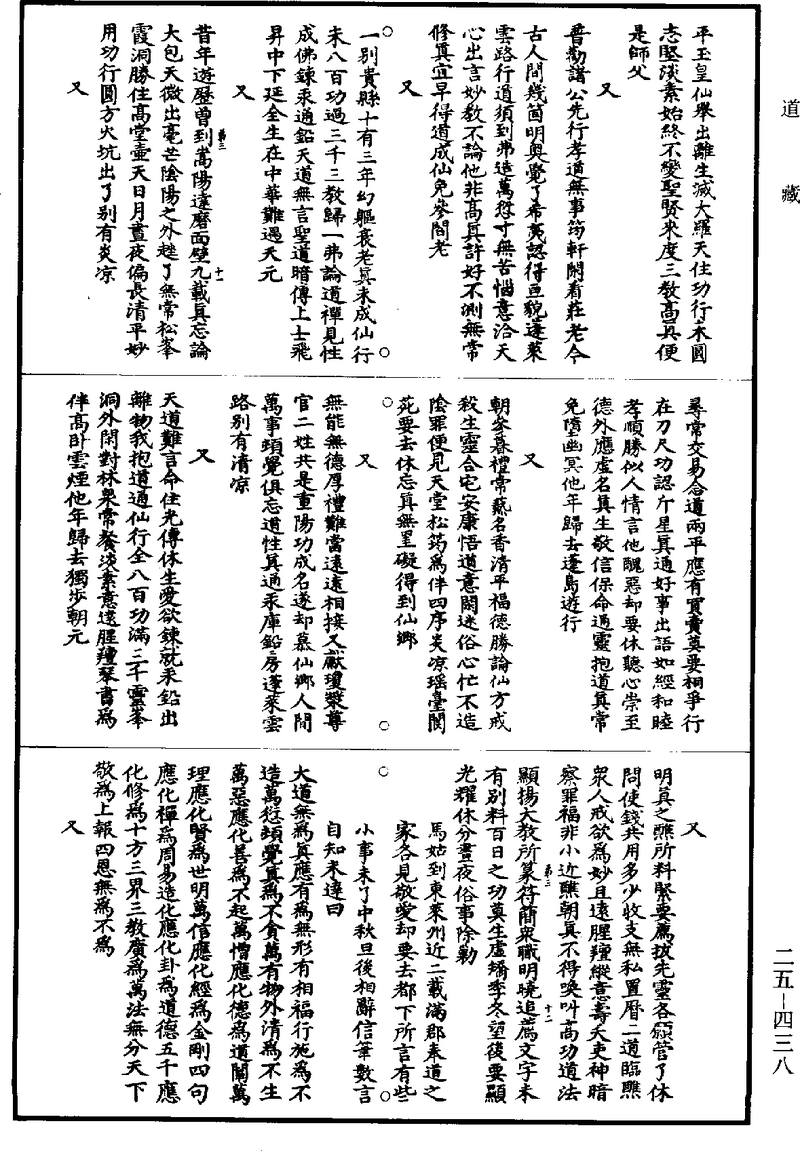 道藏
平玉皇仙舉出離生滅大羅天住功行未圓
志堅淡素始終不變聖賢來度三敎高眞便
是師父
又
普勸諸公先行孝道無事筠軒閑看莊老今
古人間幾箇明奧覺了希夷認得亘貌蓬萊
雲路行道須到弗造萬愆寸無苦惱意洽天
心出言妙敎不論他非高眞許好不測無常
修眞宜早得道成仙免參閻老
又
一別貴縣十有三年幻軀衰老眞未成仙行
未八百功過三千三敎歸一弗論道禪見性
成佛鍊汞通鉛天道無言聖道暗傳上士飛
昇中下延全生在中華難遇天元
又
昔年遊歷曾到嵩陽達磨面壁九載眞忘論
第三
十一
大包天微出毫芒陰陽之外趓了無常松峯
霞洞勝住高堂壷天日月晝夜偏長清平妙
用功行圓方火坑出了別有炎凉
又
尋常交易合道兩平應有買賣莫要相爭行
在刀尺功認斤星眞通好事出語如經和睦
孝順勝似人情言他醜惡却要休聽心崇至
德外應虛名眞生敬信保命通靈抱道眞常
免墮幽冥他年歸去蓬島遊行
又
朝參暮禮常爇名香清平福德勝論仙方戒
殺生靈合宅安康悟道意閑迷俗心忙不造
陰罪便見天堂松筠爲伴四序炎凉瑶臺閬
苑要去休忘眞無罣礙得到仙鄉
又
無能無德厚禮難當遠遠相接又獻瓊漿尊
官二姓共是重陽功成名遂却慕仙鄉人間
萬事頭覺俱忘道性眞通汞庫鉛房蓬萊雲
路別有清凉
又
天道難言命住光傳休生愛欲鍊就汞鉛出
離物我抱道通仙行全八百功滿三千靈峯
洞外閑對林泉常餐淡素意遠腥羶琴書爲
伴高卧雲煙他年歸去獨步朝元
又
明眞之醮所料緊要薦拔先靈各願管了休
問使錢共用多少收支無私置曆二道臨醮
衆人戒欲爲妙且遠腥羶縱意壽夭吏神暗
察罪福非小近醮朝眞不得喚叫高功道法
顯揚大敎所篆符簡衆職明曉追薦文字未
第三
十二
有別料百日之功莫生虛矯季冬望後要顯
光耀休分晝夜俗事除勦
馬姑到東萊州近二載滿郡奉道之
家各見敬愛却要去都下所言有些
小事未了中秋旦後相辭信筆數言
自知未達曰
大道無爲眞應有爲無形有相福行施爲不
造萬愆頭覺眞爲不貪萬有物外清爲不生
萬惡應化善爲不起萬憎應化德爲道闡萬
理應化賢爲世明萬信應化經爲金剛四句
應化禪爲周易造化應化卦爲道德五千應
化修爲十方三界三敎廣爲萬法無分天下
敬爲上報四恩無爲不爲
又
二五–四三八